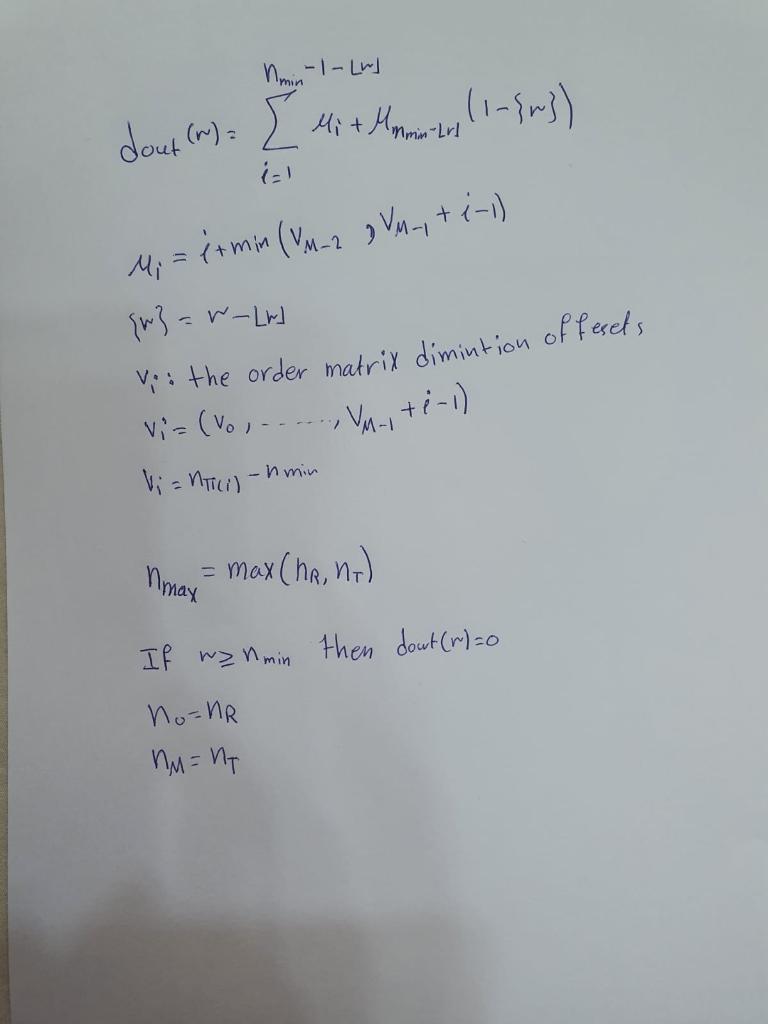 n_min - 1 - ⌊r⌋
dout(r) = Σ μ_i + μ_{n_min - ⌊r⌋} (1 - {r})
i=1
μ_i = i + min(V_{M-2} , V_{M-1} + i - 1)
{r} = r - ⌊r⌋
V_i : the order matrix dimintion offesets
V_i = (V_0 , ------, V_{M-1} + i - 1)
V_i = n_{π(i)} - n min
n_max = max(n_R, n_T)
If r ≥ n_min then dout(r) = 0
n_0 = n_R
n_M = n_T